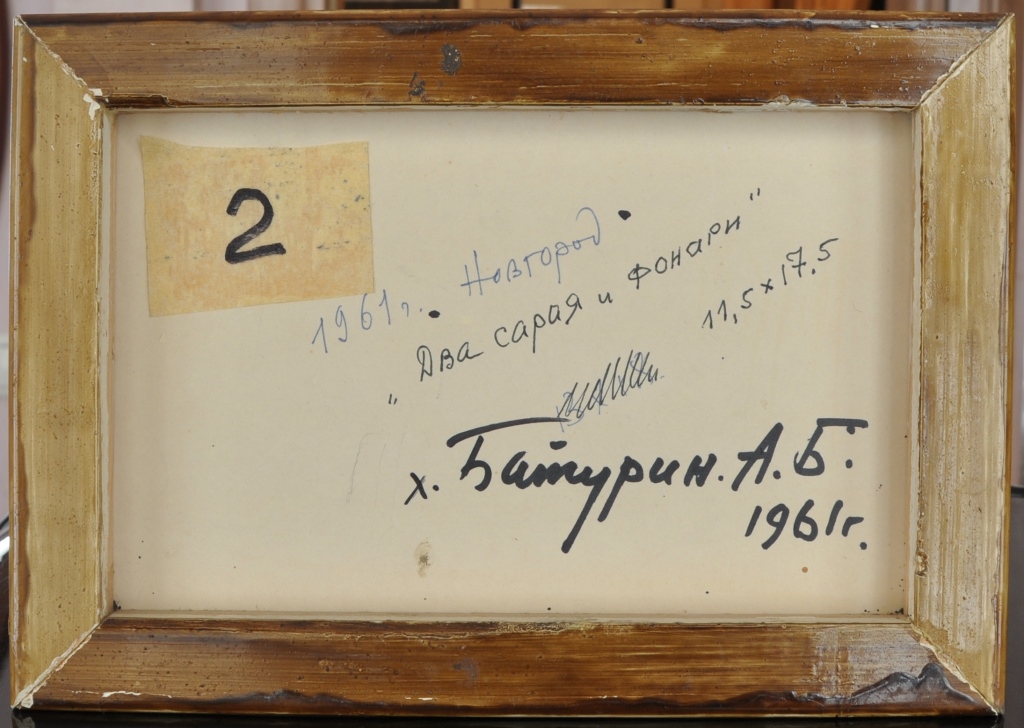 2
1961г. Новгород
"Два сарая и фонари"
11,5 x 17.5
х. Батурин. А. Б.
1961г.